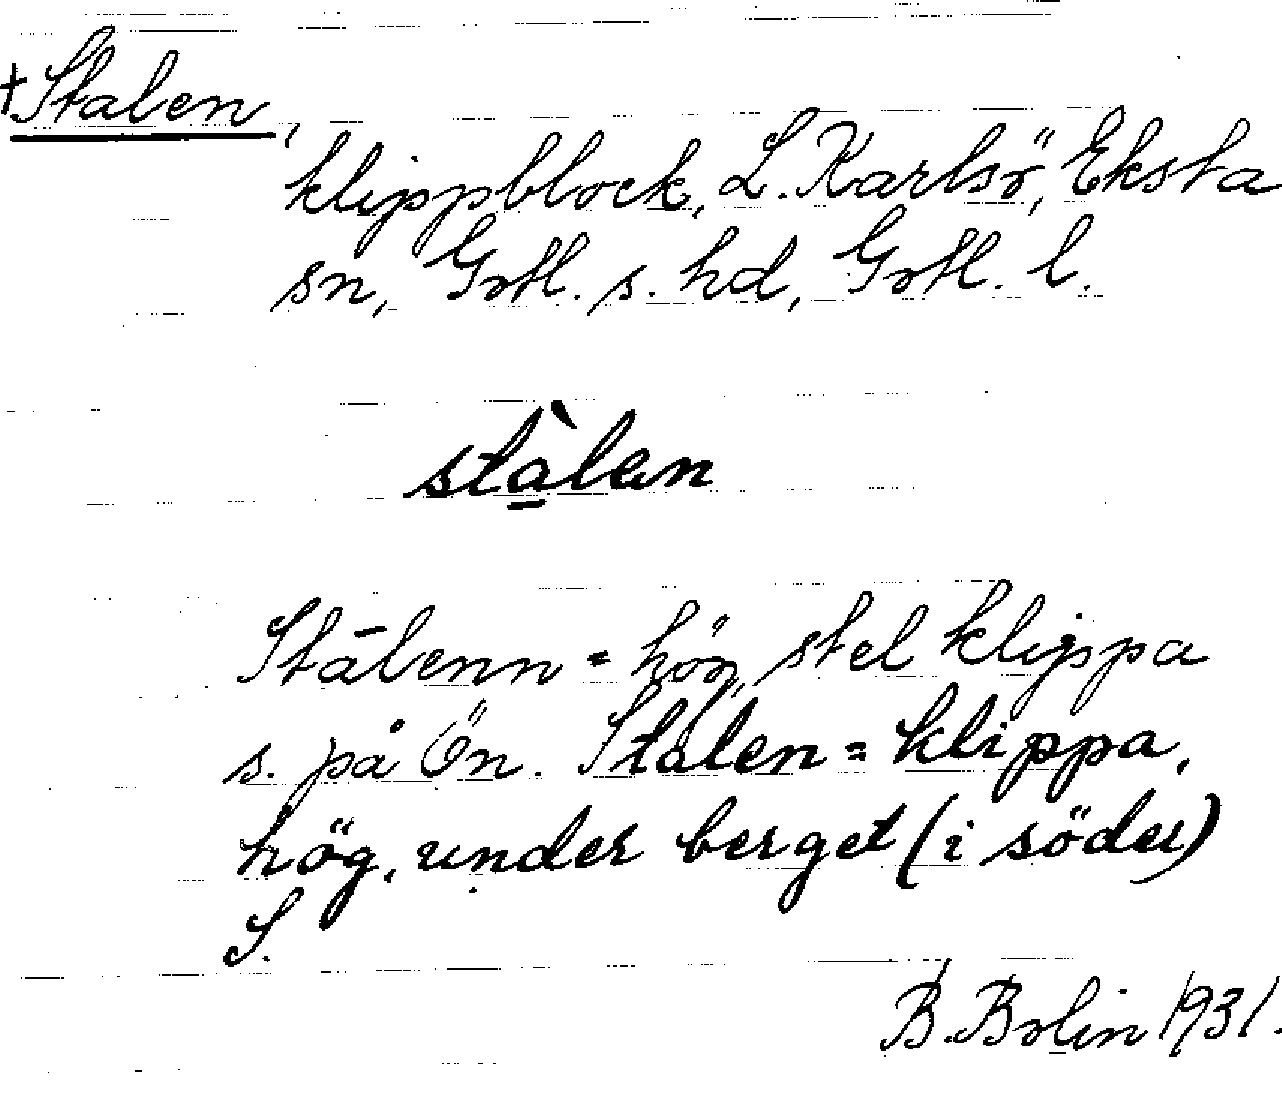 †Stalen,
klippblock, L. Karlsö, Eksta
sn, Gotl. s. hd, Gotl. l.
stàlen
Stālenn = hög, stel klippa
s. på Ön. Stålen = klippa,
hög, under berget (i söder)
S.
B. Bolin 1931.